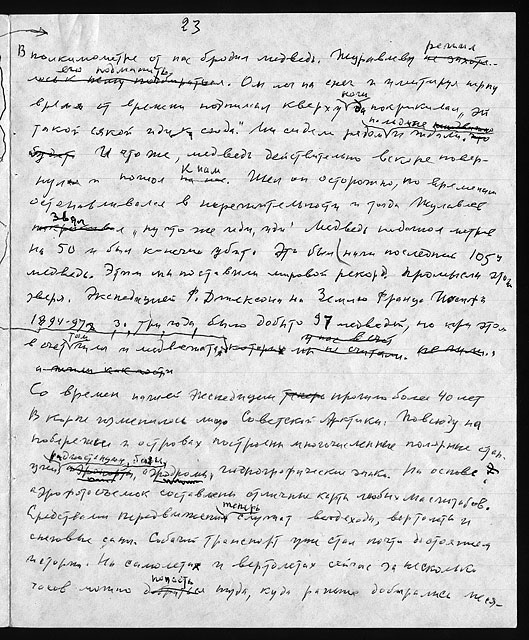 23
В полкилометре от нас бродил медведь. Журавлев решил
его подманить. Он лег на снег и имитируя нерпу
время от времени поднимал кверху ноги да покрикивал „эй
такой сякой иди сюда". Мы сидели рядом и ждали,
И что же, медведь действительно вскоре повер-
нул и пошел к нам. Шел он осторожно, по временам
останавливался в нерешительности и тогда Журавлев
звал „ну что же иди, иди". Медведь подошел метров
на 50 и был конечно убит. Это был наш последний 105й
медведь. Этим мы поставили мировой рекорд промысла этого
зверя. Экспедицией Ф. Джексона на Землю Франца Иосифа
1894-97 гг, за три года, было добыто 97 медведей, но при этом
в счет там шли и медвежата,
Со времен нашей экспедиции прошло более 40 лет
В корне изменилось лицо Советской Арктики. Повсюду на
побережье и островах построены многочисленные полярные стан-
ции, радиостанции, базы, аэродромы, гидрографические знаки. На основе
аэрофотосъемок составлены отличные карты любых масштабов.
Средствами передвижения теперь служат вездеходы, вертолеты и
снеговые сани. Собачий транспорт уже стал почти достоянием
истории. На самолетах и вертолетах сейчас за несколько
часов можно попасть туда, куда раньше добирались меся-